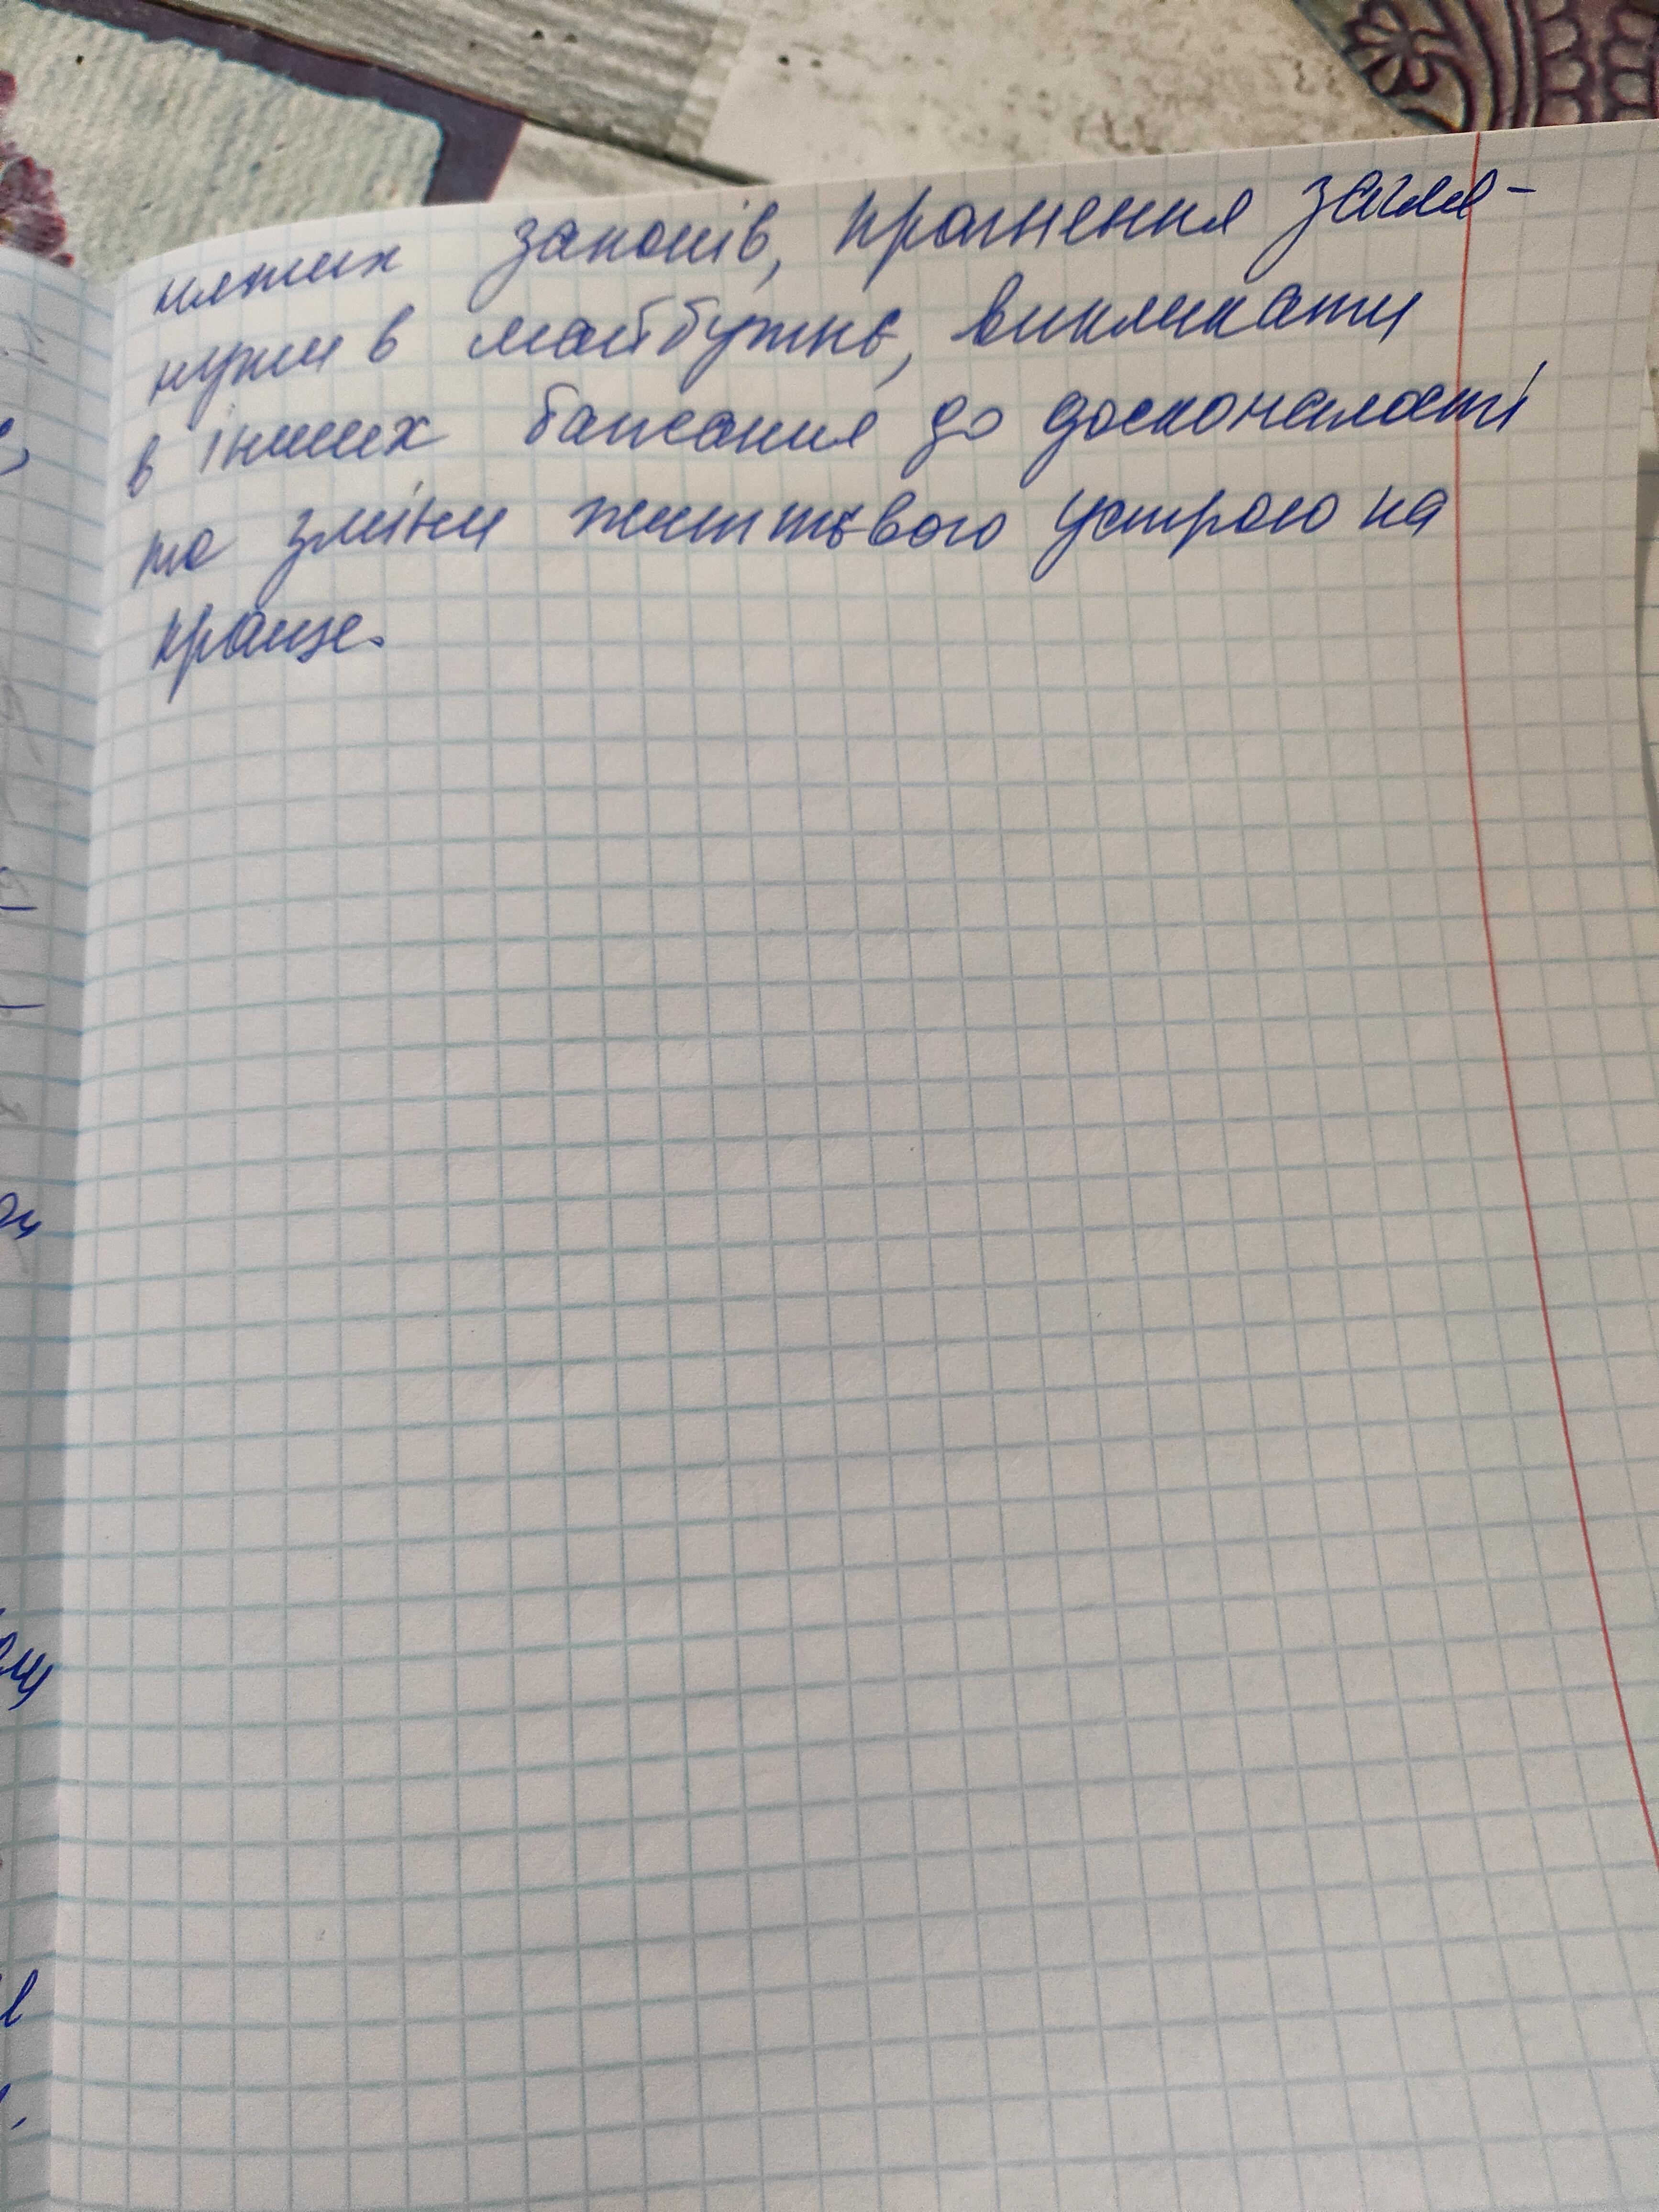 законів, прагнення загля-
нути в майбутнє, викликати
в інших бажання до досконалості
та зміни життєвого устрою на
краще.